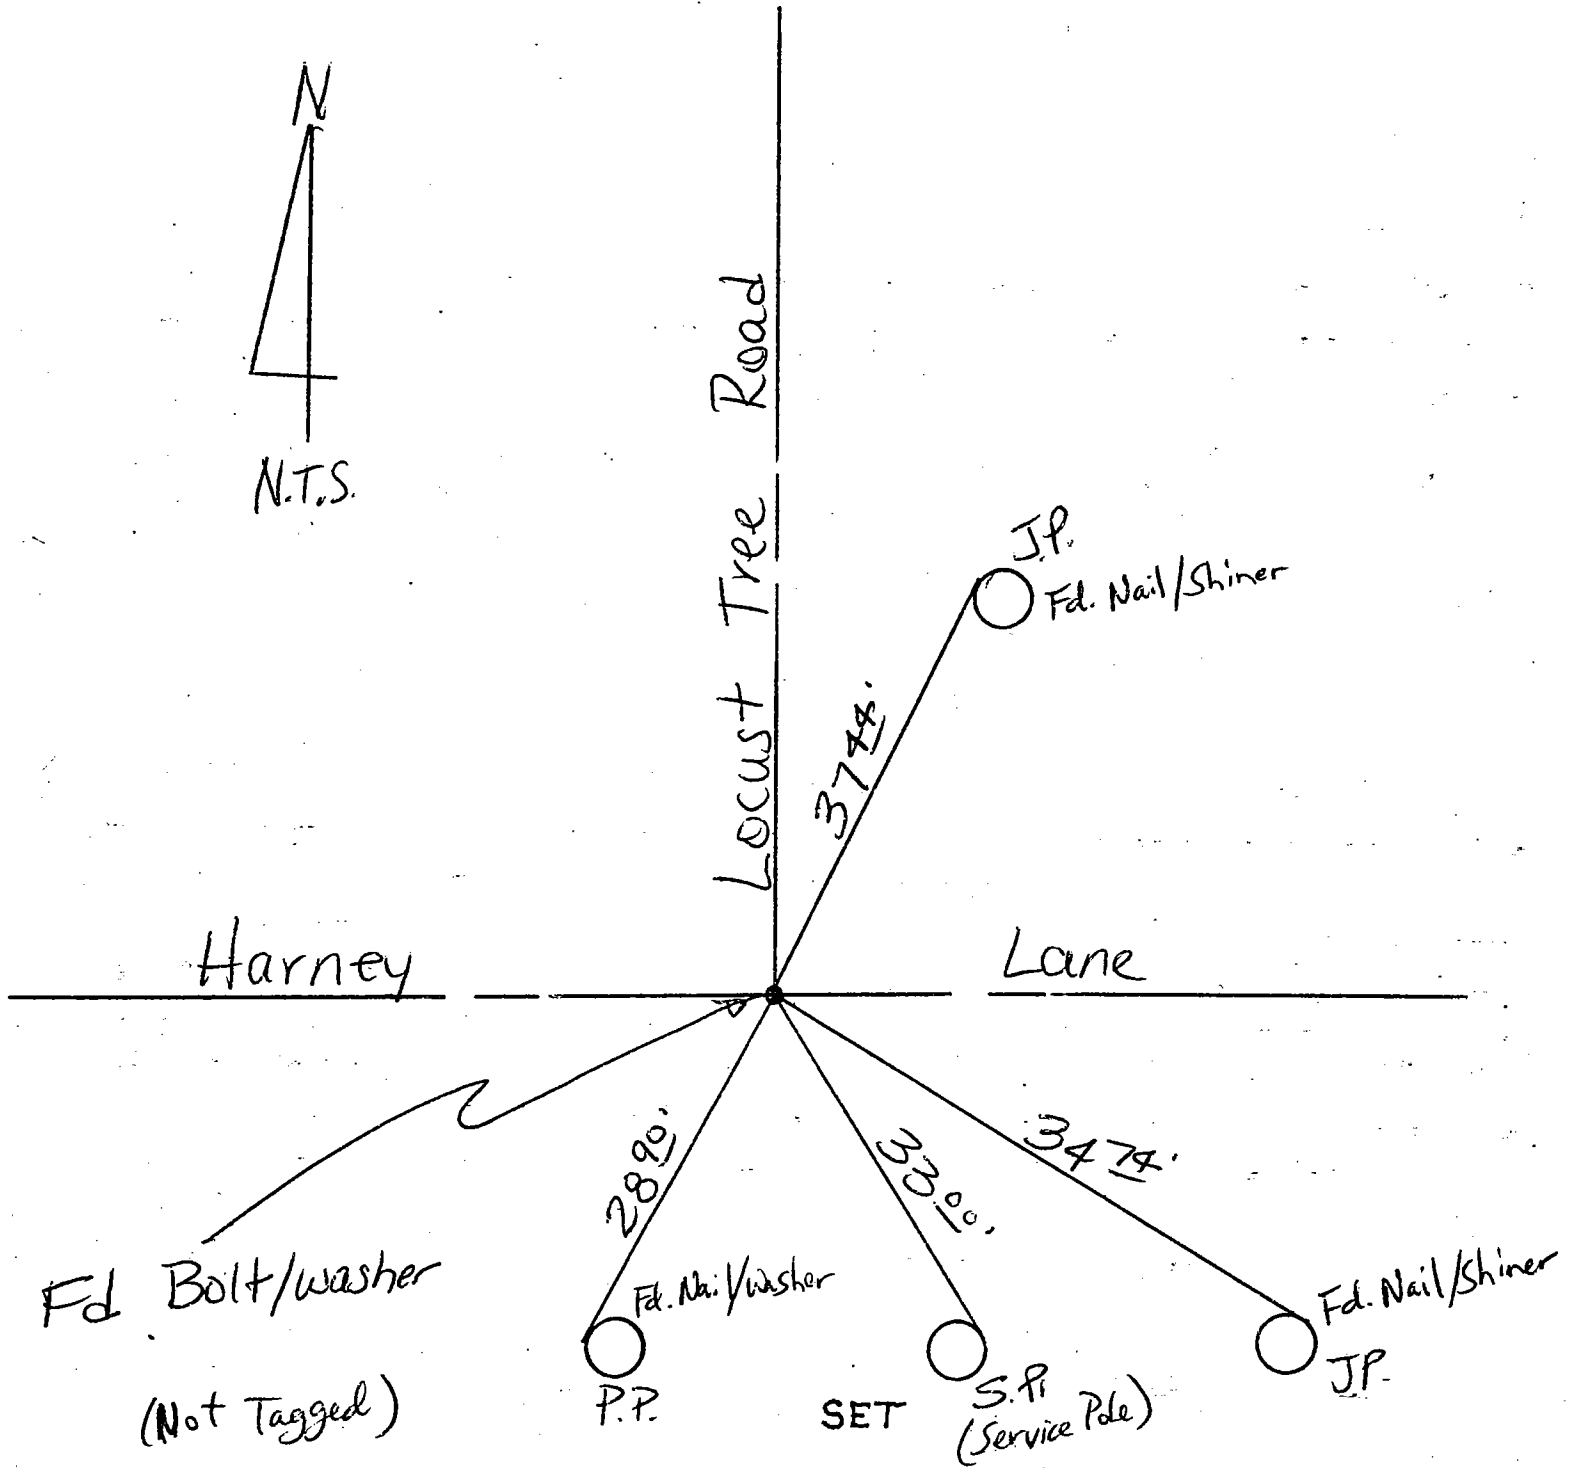 N
N.T.S.
Locust Tree Road
J.P.
Fd. Nail/Shiner
37 44'
Harney Lane
28 90'
33 00'
34 74'
Fd Bolt/washer
(Not Tagged)
Fd. Nail/washer
P.P.
SET
S.P.
(Service Pole)
Fd. Nail/Shiner
J.P.